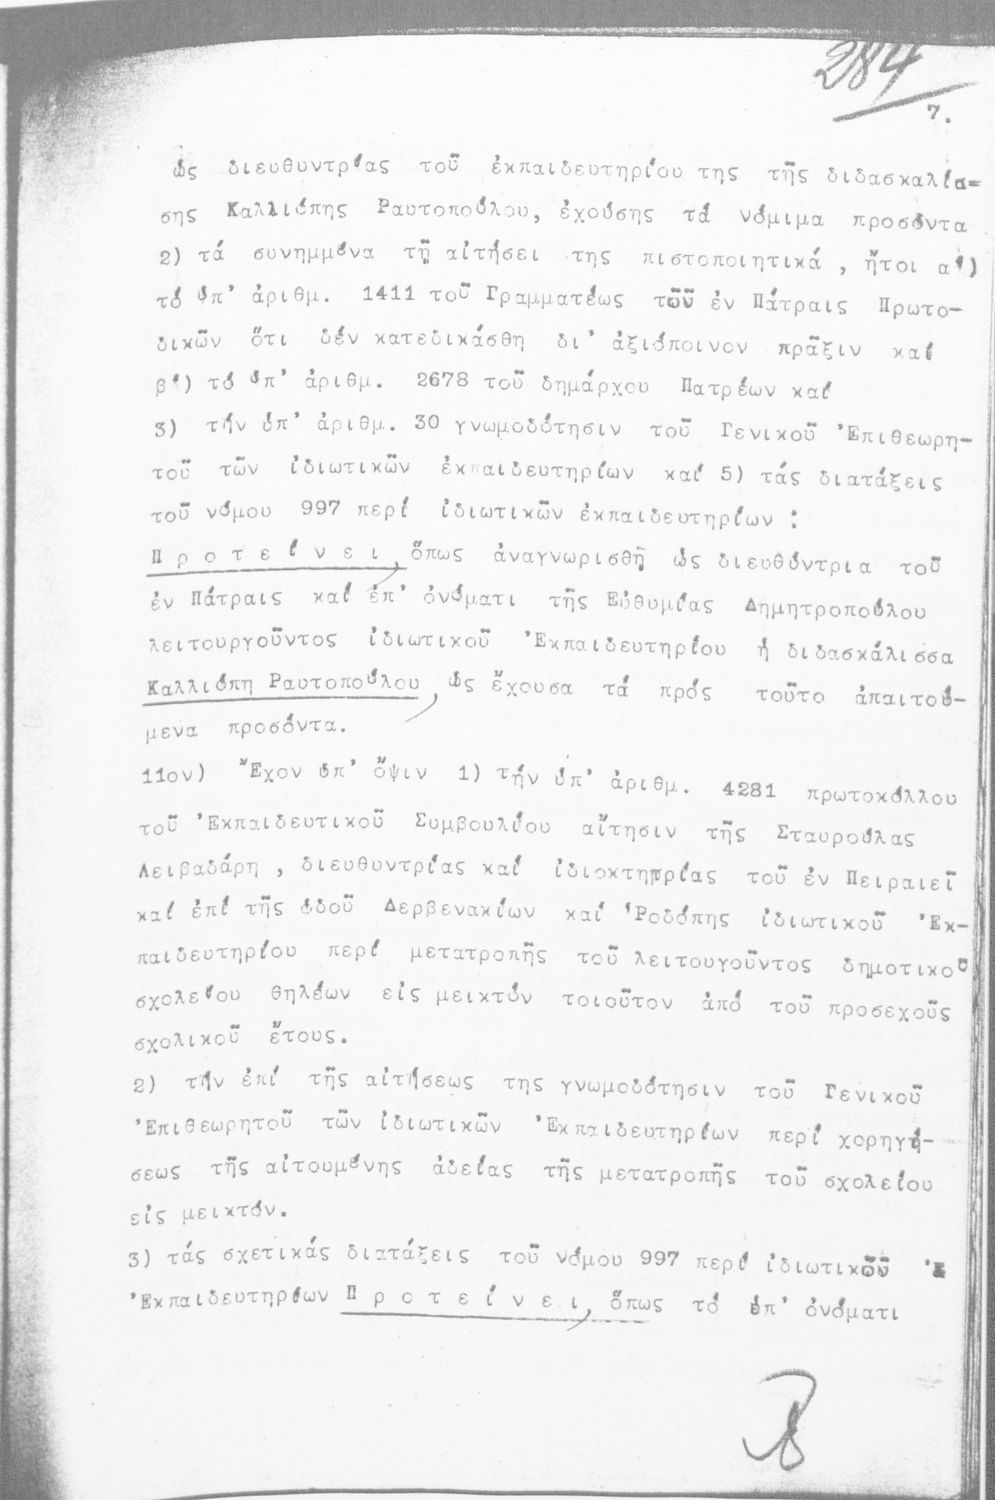 284
7.
ὡς διευθυντρίας τοῦ ἐκπαιδευτηρίου της τῆς διδασκαλίσ=
σης Καλλιόπης Ραυτοπούλου, ἐχούσης τά νόμιμα προσόντα
2) τά συνημμένα τῇ αἰτήσει της πιστοποιητικά , ἤτοι α')
τό ὑπ' ἀριθμ. 1411 τοῦ Γραμματέως τοῦ ἐν Πάτραις Πρωτο-
δικῶν ὅτι δέν κατεδικάσθη δι' ἀξιόποινον πρᾶξιν καί
β') τό ὑπ' ἀριθμ. 2678 τοῦ δημάρχου Πατρέων καί
3) τήν ὑπ' ἀριθμ. 30 γνωμοδότησιν τοῦ Γενικοῦ Ἐπιθεωρη-
τοῦ τῶν ἰδιωτικῶν ἐκπαιδευτηρίων καί 5) τάς διατάξεις
τοῦ νόμου 997 περί ἰδιωτικῶν ἐκπαιδευτηρίων :
Π ρ ο τ ε ί ν ε ι , ὅπως ἀναγνωρισθῇ ὡς διευθύντρια τοῦ
ἐν Πάτραις καί ἐπ' ὀνόματι τῆς Εὐθυμίας Δημητροπούλου
λειτουργοῦντος ἰδιωτικοῦ Ἐκπαιδευτηρίου ἡ διδασκάλισσα
Καλλιόπη Ραυτοπούλου , ὡς ἔχουσα τά πρός τοῦτο ἀπαιτού-
μενα προσόντα.
11ον) Ἔχον ὑπ' ὄψιν 1) τήν ὑπ' ἀριθμ. 4281 πρωτοκόλλου
τοῦ Ἐκπαιδευτικοῦ Συμβουλίου αἴτησιν τῆς Σταυρούλας
Λειβαδάρη , διευθυντρίας καί ἰδιοκτητρίας τοῦ ἐν Πειραιεῖ
καί ἐπί τῆς ὁδοῦ Δερβενακίων καί Ῥοδόπης ἰδιωτικοῦ Ἐκ-
παιδευτηρίου περί μετατροπῆς τοῦ λειτουγοῦντος δημοτικοῦ
σχολείου θηλέων εἰς μεικτόν τοιοῦτον ἀπό τοῦ προσεχοῦς
σχολικοῦ ἔτους.
2) τήν ἐπί τῆς αἰτήσεως της γνωμοδότησιν τοῦ Γενικοῦ
Ἐπιθεωρητοῦ τῶν ἰδιωτικῶν Ἐκπαιδευτηρίων περί χορηγή-
σεως τῆς αἰτουμένης ἀδείας τῆς μετατροπῆς τοῦ σχολείου
εἰς μεικτόν.
3) τάς σχετικάς διατάξεις τοῦ νόμου 997 περί ἰδιωτικῶν
Ἐκπαιδευτηρίων Π ρ ο τ ε ί ν ε ι , ὅπως τό ὑπ' ὀνόματι